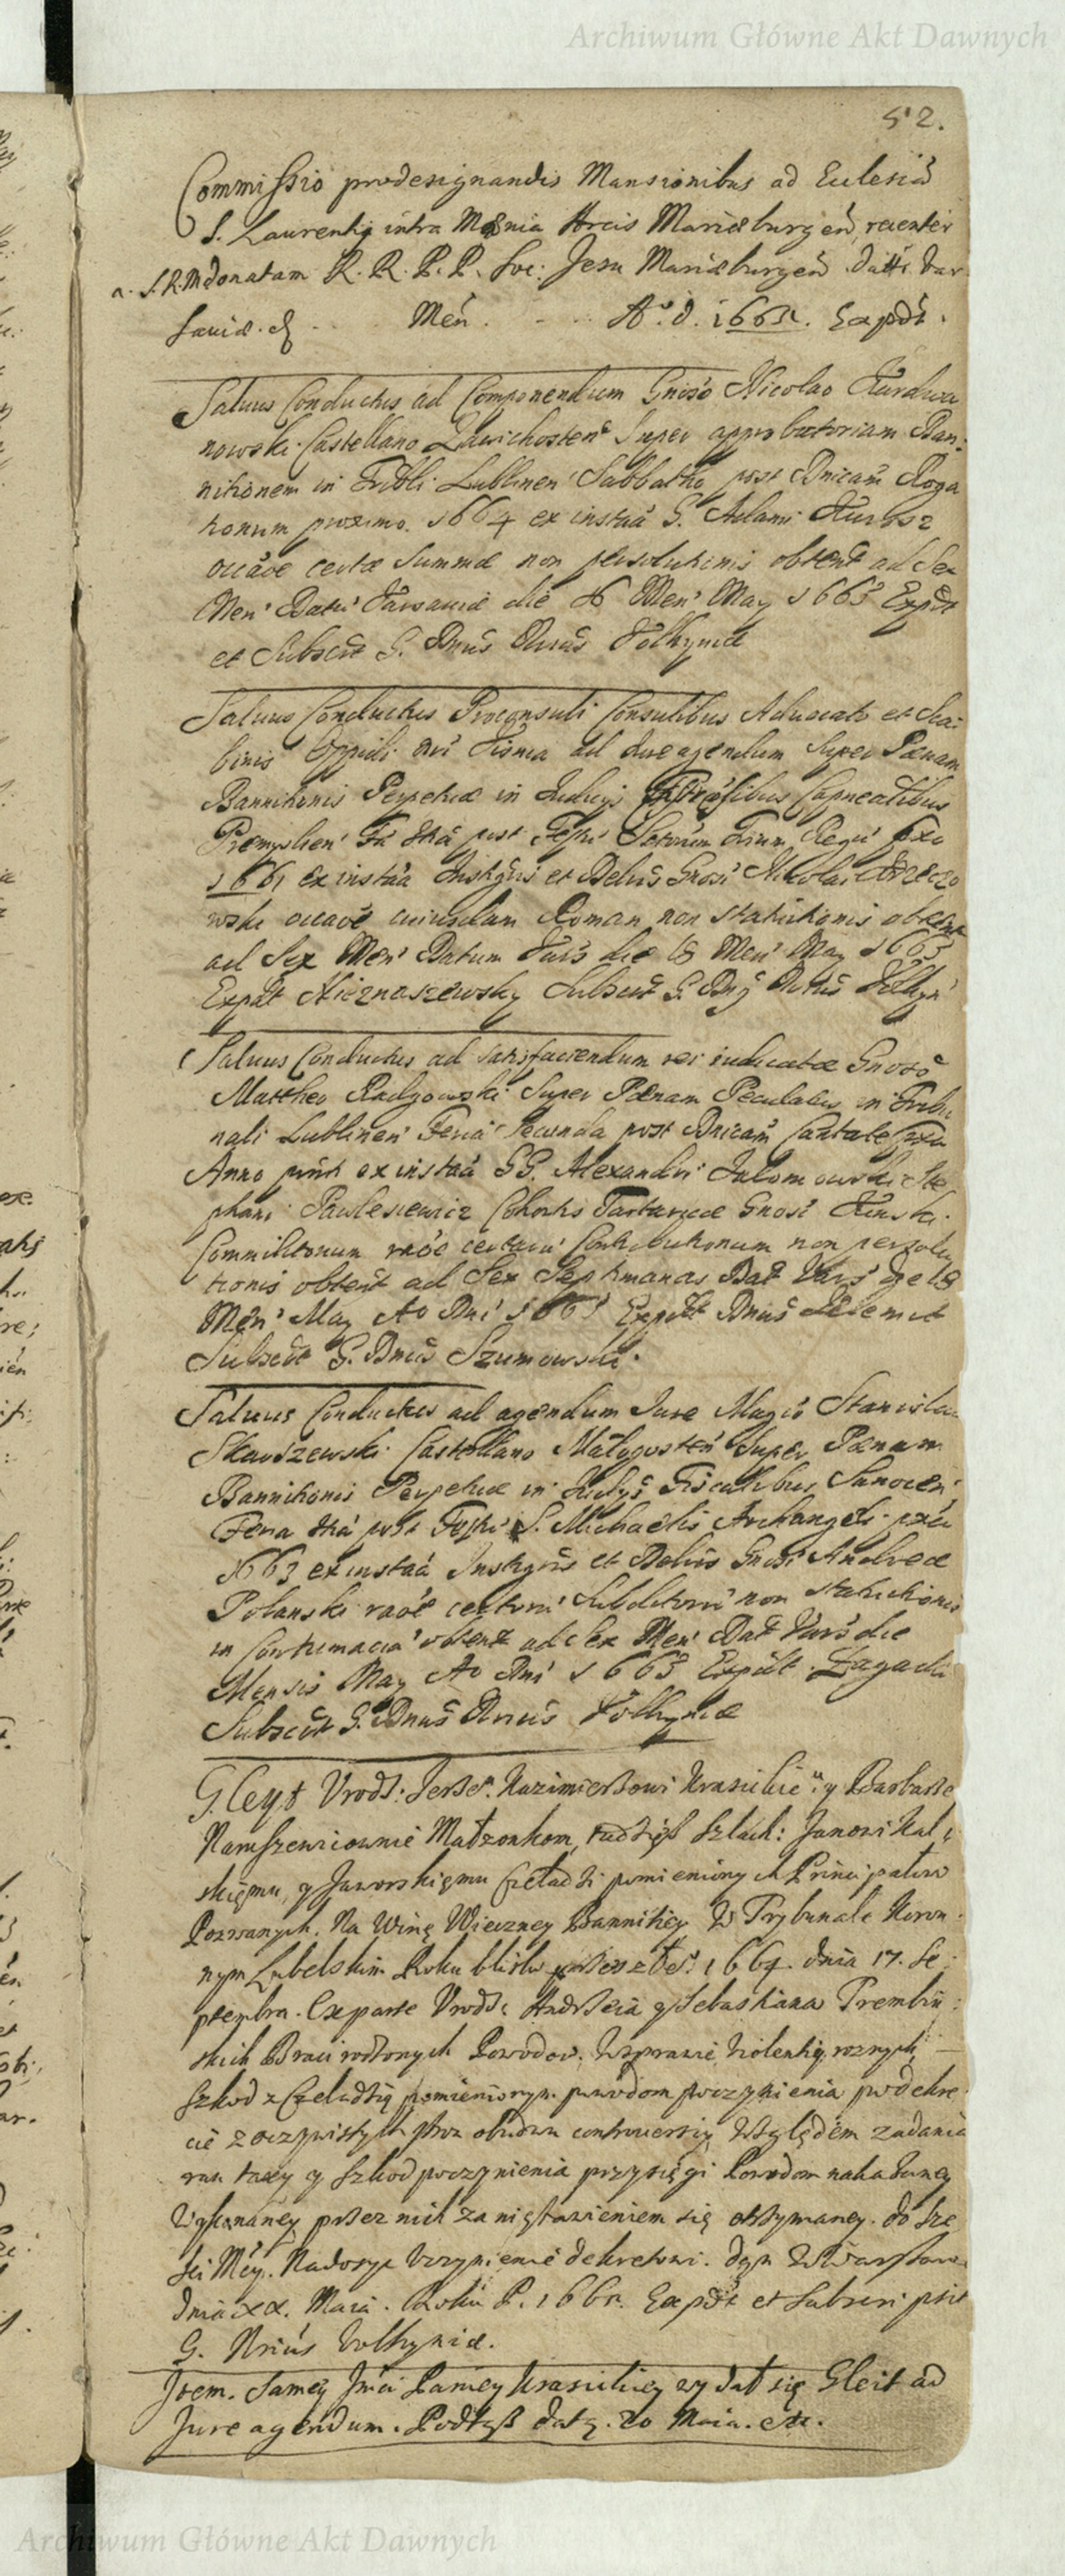 Archiwum Główne Akt Dawnych
52.
Commissio prodesignandis Mansionibus ad Eclesiã
S. Laurentij intra Mænia Arcis Mariæburgeñ recenter
a. S.R.M donatam R. R. P. P. Soc: Jesu Mariæburgeñ Datt. Var
saviæ. d Meñ. Aº. d. 1665. Expdt.
Salvus Conductus ad Componendum Gnoso Nicolao
nowski Castellano Zawichosteñ Super approbatoriam Ban:
nitionem in Tribli Lublinen Sabbatho post Dnicam Roga
tionum proximo. 1664 ex instãa G. Adami
occãõe certæ Summæ non persolutionis obtent ad Sex
Men Datt Varsaviæ die 16 Men May 1665 Expdt
et Subscdt G. Dnus Nrius Volhyniæ
Salvus Conductus Proconsuli Consulibus Advocato et Sca:
binis Oppidi nri Tisma ad Jure agendum Super Pænam
Bannitionis Perpetuæ in Judicijs Capnealibus
Præmyslien Fa 2da post Festū Sctorum Trium Regū pxa
1661 ex instãa Instgris et Delris Gnosi Nicolai
wski occãõe cuiusdam Roman non statutionis obtent
ad Sex Men Datum Vars die 18 Men May 1665
Expdt Nieznaszewsky Subscdt G. Dns Nrius Volhyn
Salvus Conductus ad satisfaciendum rei iudicatæ Gnoso
Mattheo Radzowski Super Pænam Peculatus in Tribu
nali Lublinen Feria Secunda post Dnicam Cantate pxa
Anno pñti ex instãa GG. Alexandri Jalomowski Ste
phani Pawlesiewicz Cohortis Tartaricæ Gnosi
Commilitonum raõe certarū Contributionum non persolu
tionis obtent ad Sex Septimanas Dat Vars Die 18
Men May Ao Dni 1665 Expdt Dnus
Subscdt G. Dnus Szumowski.
Salvus Conductus ad agendum Jure Magco Stanislao
Skarszewski Castellano Małogosteñ Super Pænam
Bannitionis Perpetuæ in Judijs Fiscalibus Sanocen
Feria 2da post Festū S. Michaelis Archangeli pxa
1663 ex instãa Instgris et Delris Gnosi Andreæ
Polanski raõe certorū Subditorū non statutionis
in Contumaciã obtent ad Sex Men Dat Vars die
Mensis May Ao Dni 1665 Expdt Zagacki
Subscdt G. Dnus Nrius Volhyniæ
Gleyt Vrodz: Jerzeº. Kazimierzowi Krasickieº: y Barbarze
Nareszewiownie Małzonkom, tudziesz Szlach: Janowi Kal
skiemu, y Jaworskiemu Czeladzi pomienionych Principałow
Pozwanych. Na Winę Wieczney Bannitiey W Trybunale Koron
nym Lubelskim Roku blisko przeszłeº. 1664. dnia 17. Se:
ptembra. Ex parte Vrodz: Andrzeia y Sebastiana Trembin:
skich Braci rodzonych Powodow, Wsprawie Violentiy roznych,
Szkod z Czeladzią pomienionym powodom poczynienia po dekre
cie z oczywistych stron obudwu controversiy Względem zadania
ran taxy y Szkod poczynienia przysięgi Powodom nakazaney
Wykonaney przez nich za niestawieniem się otrzymaney. do Sze
sci Mcy. Nadosyc Vczynienie dekretowi. dan W Warszawie
dnia xx. Maia. Roku P. 1665. Expdt et Subscripsit
G. Nrius Volhyniæ.
Item. Samey Jmci Paniey Krasickiey wydał się Gleit ad
Jure agendum. Podtąsz datą. 20 Maia. etc.
Archiwum Główne Akt Dawnych